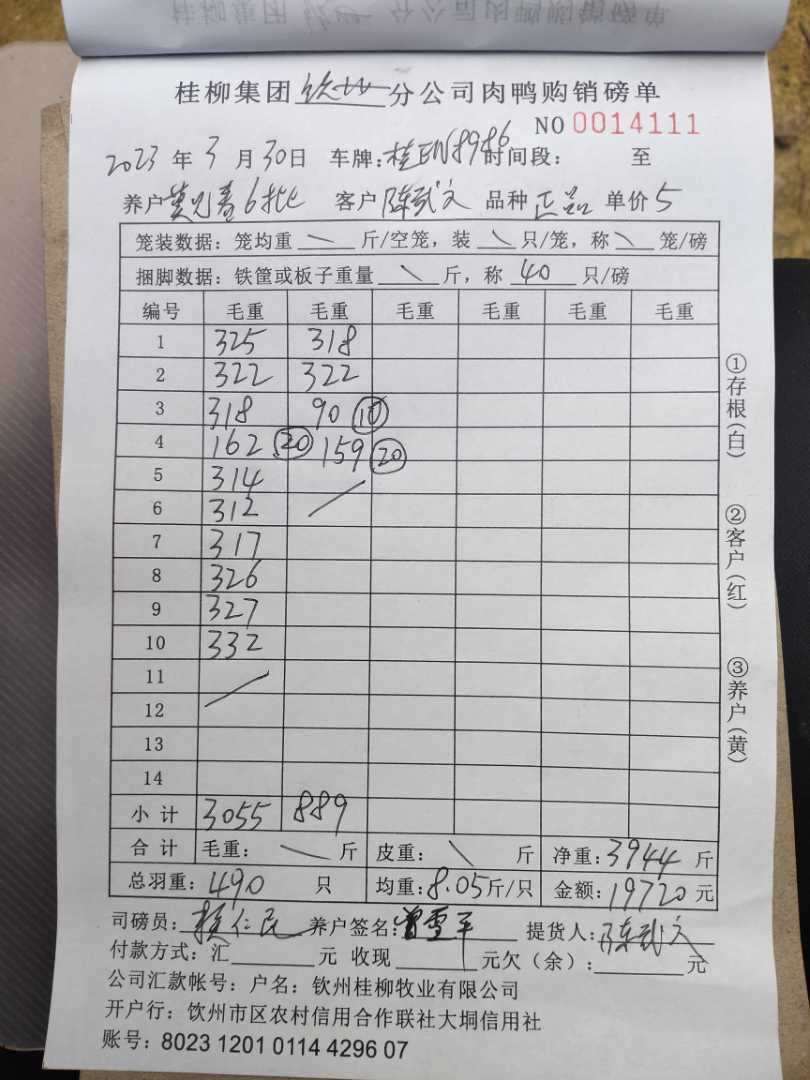 桂柳集团钦州分公司肉鸭购销磅单
NO 0014111
2023年3月30日 车牌:桂 8986 时间段: 至
养户 6批 客户陈武文 品种正品 单价5
笼装数据:笼均重 \ 斤/空笼,装 \ 只/笼,称 \ 笼/磅
捆脚数据:铁筐或板子重量 \ 斤,称 40 只/磅
编号 毛重 毛重 毛重 毛重 毛重 毛重
1 325 318
2 322 322
3 318 90 ⑩
4 162 ⑳ 159 ⑳
5 314
6 312 /
7 317
8 326
9 327
10 332
11 /
12
13
14
小计 3055 889
合计 毛重: \ 斤 皮重: \ 斤 净重:3944斤
总羽重:490 只 均重:8.05斤/只 金额:19720元
司磅员: 仁民 养户签名:曾雪平 提货人:陈武文
付款方式:汇 元 收现 元欠(余): 元
公司汇款帐号:户名:钦州桂柳牧业有限公司
开户行:饮州市区农村信用合作联社大垌信用社
账号:8023 1201 0114 4296 07
①存根(白)
②客户(红)
③养户(黄)